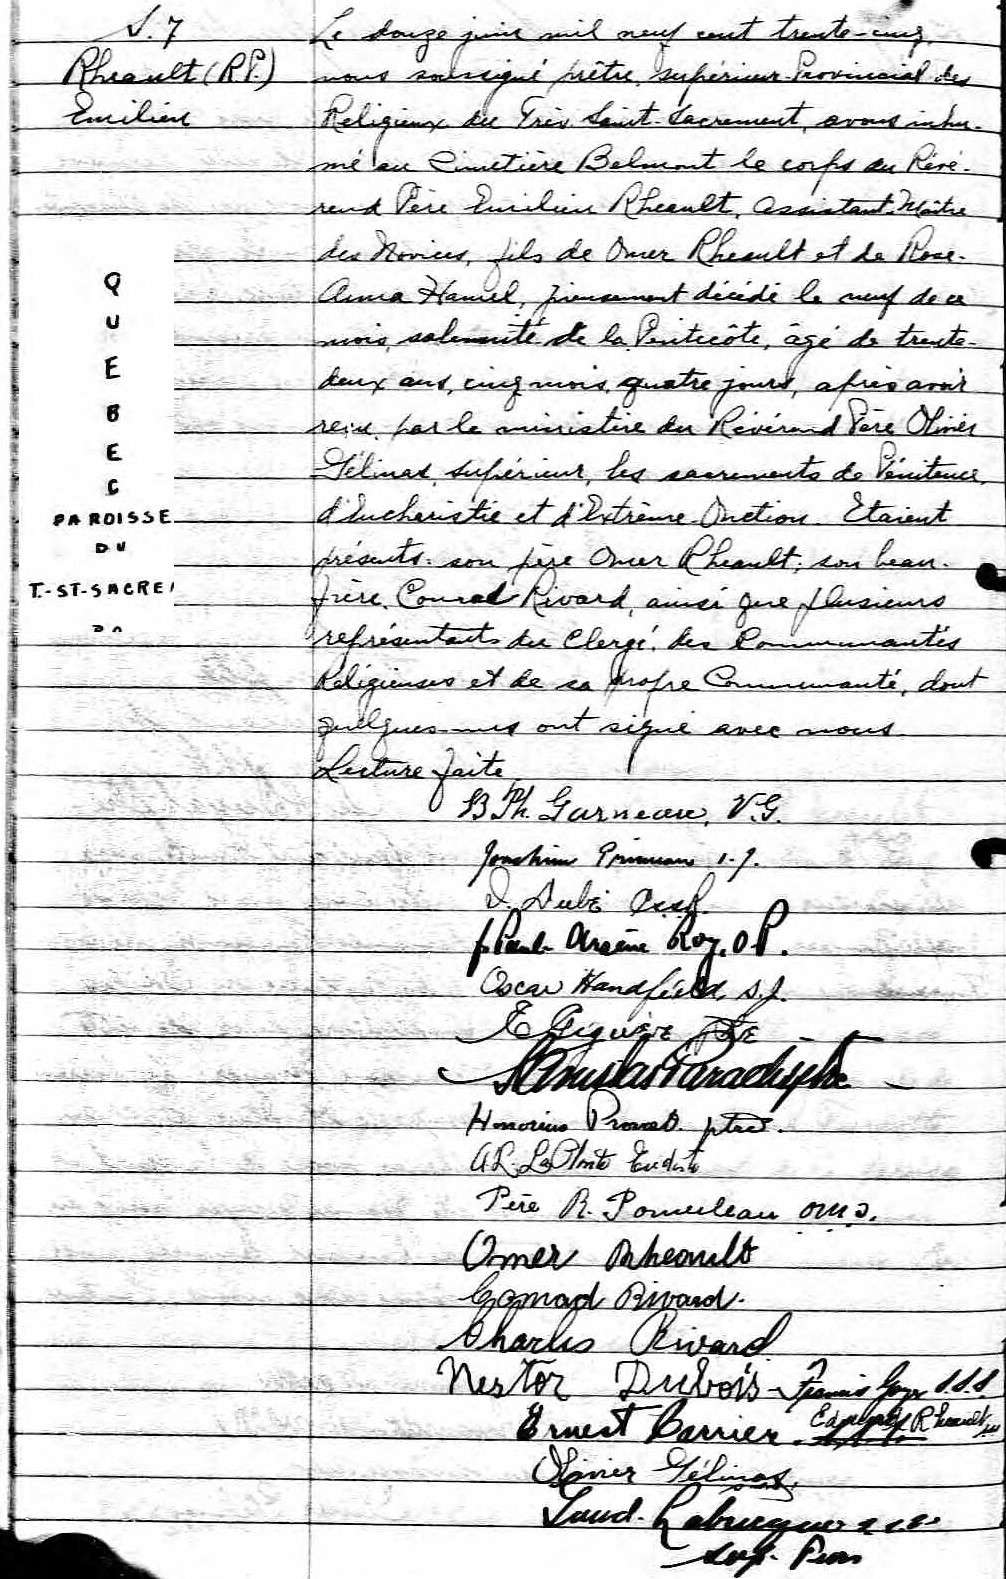 S. 7
Rheault (R.P.)
Emilien
Q
U
E
B
E
C
PAROISSE
DU
T.-ST-SACRE
Le douze juin mil neuf cent trente-cinq,
nous soussigné prêtre, supérieur Provincial des
Religieux du Très Saint-Sacrement, avons inhu-
mé au Cimetière Belmont le corps du Révé-
rend Père Emilien Rheault, Assistant-Maître
des Novices, fils de Omer Rheault et de Rose-
Anna Hamel, pieusement décédé le neuf de ce
mois, solennité de la Pentecôte, âgé de trente-
deux ans, cinq mois, quatre jours, après avoir
reçu, par le ministère du Révérend Père Olivier
Gélinas, supérieur, les sacrements de Pénitence,
d'Eucharistie et d'Extrême-Onction. Etaient
présents: son père Omer Rheault; son beau-
frère, Conrad Rivard, ainsi que plusieurs
représentants du Clergé, des Communautés
Religieuses et de sa propre Communauté, dont
quelques-uns ont signé avec nous.
Lecture faite.
B Ph. Garneau, V.G.
Joachim Primeau
D. Dubé C.ss.R.
Paul-Arsène Roy, O.P.
Oscar Handfield, s.j.
E Giguère
Stanislas Paradis ptre
Honorius Provost, ptre.
A.L. LaPlante Eudiste
Père R. Pomerleau O.M.I.
Omer Rheault
Conrad Rivard.
Charles Rivard
Nestor Dubois - Francis Goyer S.S.S.
Ernest Barrier Edmond Rheault
Olivier Gélinas,
Laud. Labrecque s.s.s.
sup. Prov